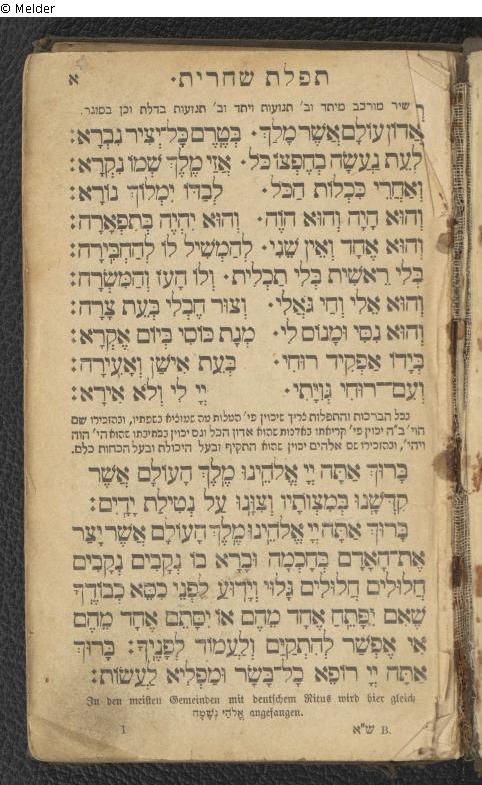 © Melder
תפלת שחרית·
א
שיר מורכב מיתד וב׳ תנועות ויתד וב׳ תנועות בדלת וכן בסוגר.
אֲדוֹן עוֹלָם אֲשֶׁר מָלַךְ· בְּטֶרֶם כָּל־יְצִיר נִבְרָא:
לְעֵת נַעֲשָׂה בְחֶפְצוֹ כֹּל· אֲזַי מֶלֶךְ שְׁמוֹ נִקְרָא:
וְאַחֲרֵי כִּכְלוֹת הַכֹּל· לְבַדּוֹ יִמְלוֹךְ נוֹרָא:
וְהוּא הָיָה וְהוּא הֹוֶה· וְהוּא יִהְיֶה בְּתִפְאָרָה:
וְהוּא אֶחָד וְאֵין שֵׁנִי· לְהַמְשִׁיל לוֹ לְהַחְבִּירָה:
בְּלִי רֵאשִׁית בְּלִי תַכְלִית· וְלוֹ הָעֹז וְהַמִּשְׂרָה:
וְהוּא אֵלִי וְחַי גֹּאֲלִי· וְצוּר חֶבְלִי בְּעֵת צָרָה:
וְהוּא נִסִּי וּמָנוֹס לִי· מְנָת כּוֹסִי בְּיוֹם אֶקְרָא:
בְּיָדוֹ אַפְקִיד רוּחִי· בְּעֵת אִישַׁן וְאָעִירָה:
וְעִם־רוּחִי גְּוִיָּתִי· יְיָ לִי וְלֹא אִירָא:
בכל הברכות והתפלות צריך שיכוין פי׳ המלות מה שמוציא בשפתיו, ובהזכירו שם
הוי׳ ב״ה יכוין פי׳ קריאתו באדנות שהוא אדון הכל וגם יכוין בכתיבתו שהוא הי׳ הוה
ויהי׳, ובהזכירו שם אלהים יכוין שהוא התקיף ובעל היכולת ובעל הכחות כלם.
בָּרוּךְ אַתָּה יְיָ אֱלֹהֵינוּ מֶלֶךְ הָעוֹלָם אֲשֶׁר
קִדְּשָׁנוּ בְּמִצְוֹתָיו וְצִוָּנוּ עַל נְטִילַת יָדָיִם:
בָּרוּךְ אַתָּה יְיָ אֱלֹהֵינוּ מֶלֶךְ הָעוֹלָם אֲשֶׁר יָצַר
אֶת־הָאָדָם בְּחָכְמָה וּבָרָא בוֹ נְקָבִים נְקָבִים
חֲלוּלִים חֲלוּלִים גָּלוּי וְיָדוּעַ לִפְנֵי כִסֵּא כְבוֹדֶךָ
שֶׁאִם יִפָּתֵחַ אֶחָד מֵהֶם אוֹ יִסָּתֵם אֶחָד מֵהֶם
אִי אֶפְשַׁר לְהִתְקַיֵּם וְלַעֲמוֹד לְפָנֶיךָ: בָּרוּךְ
אַתָּה יְיָ רוֹפֵא כָל־בָּשָׂר וּמַפְלִיא לַעֲשׂוֹת:
In den meisten Gemeinden mit deutschem Ritus wird hier gleich
אֱלֹהַי נְשָׁמָה angefangen.
1
ש״א B.